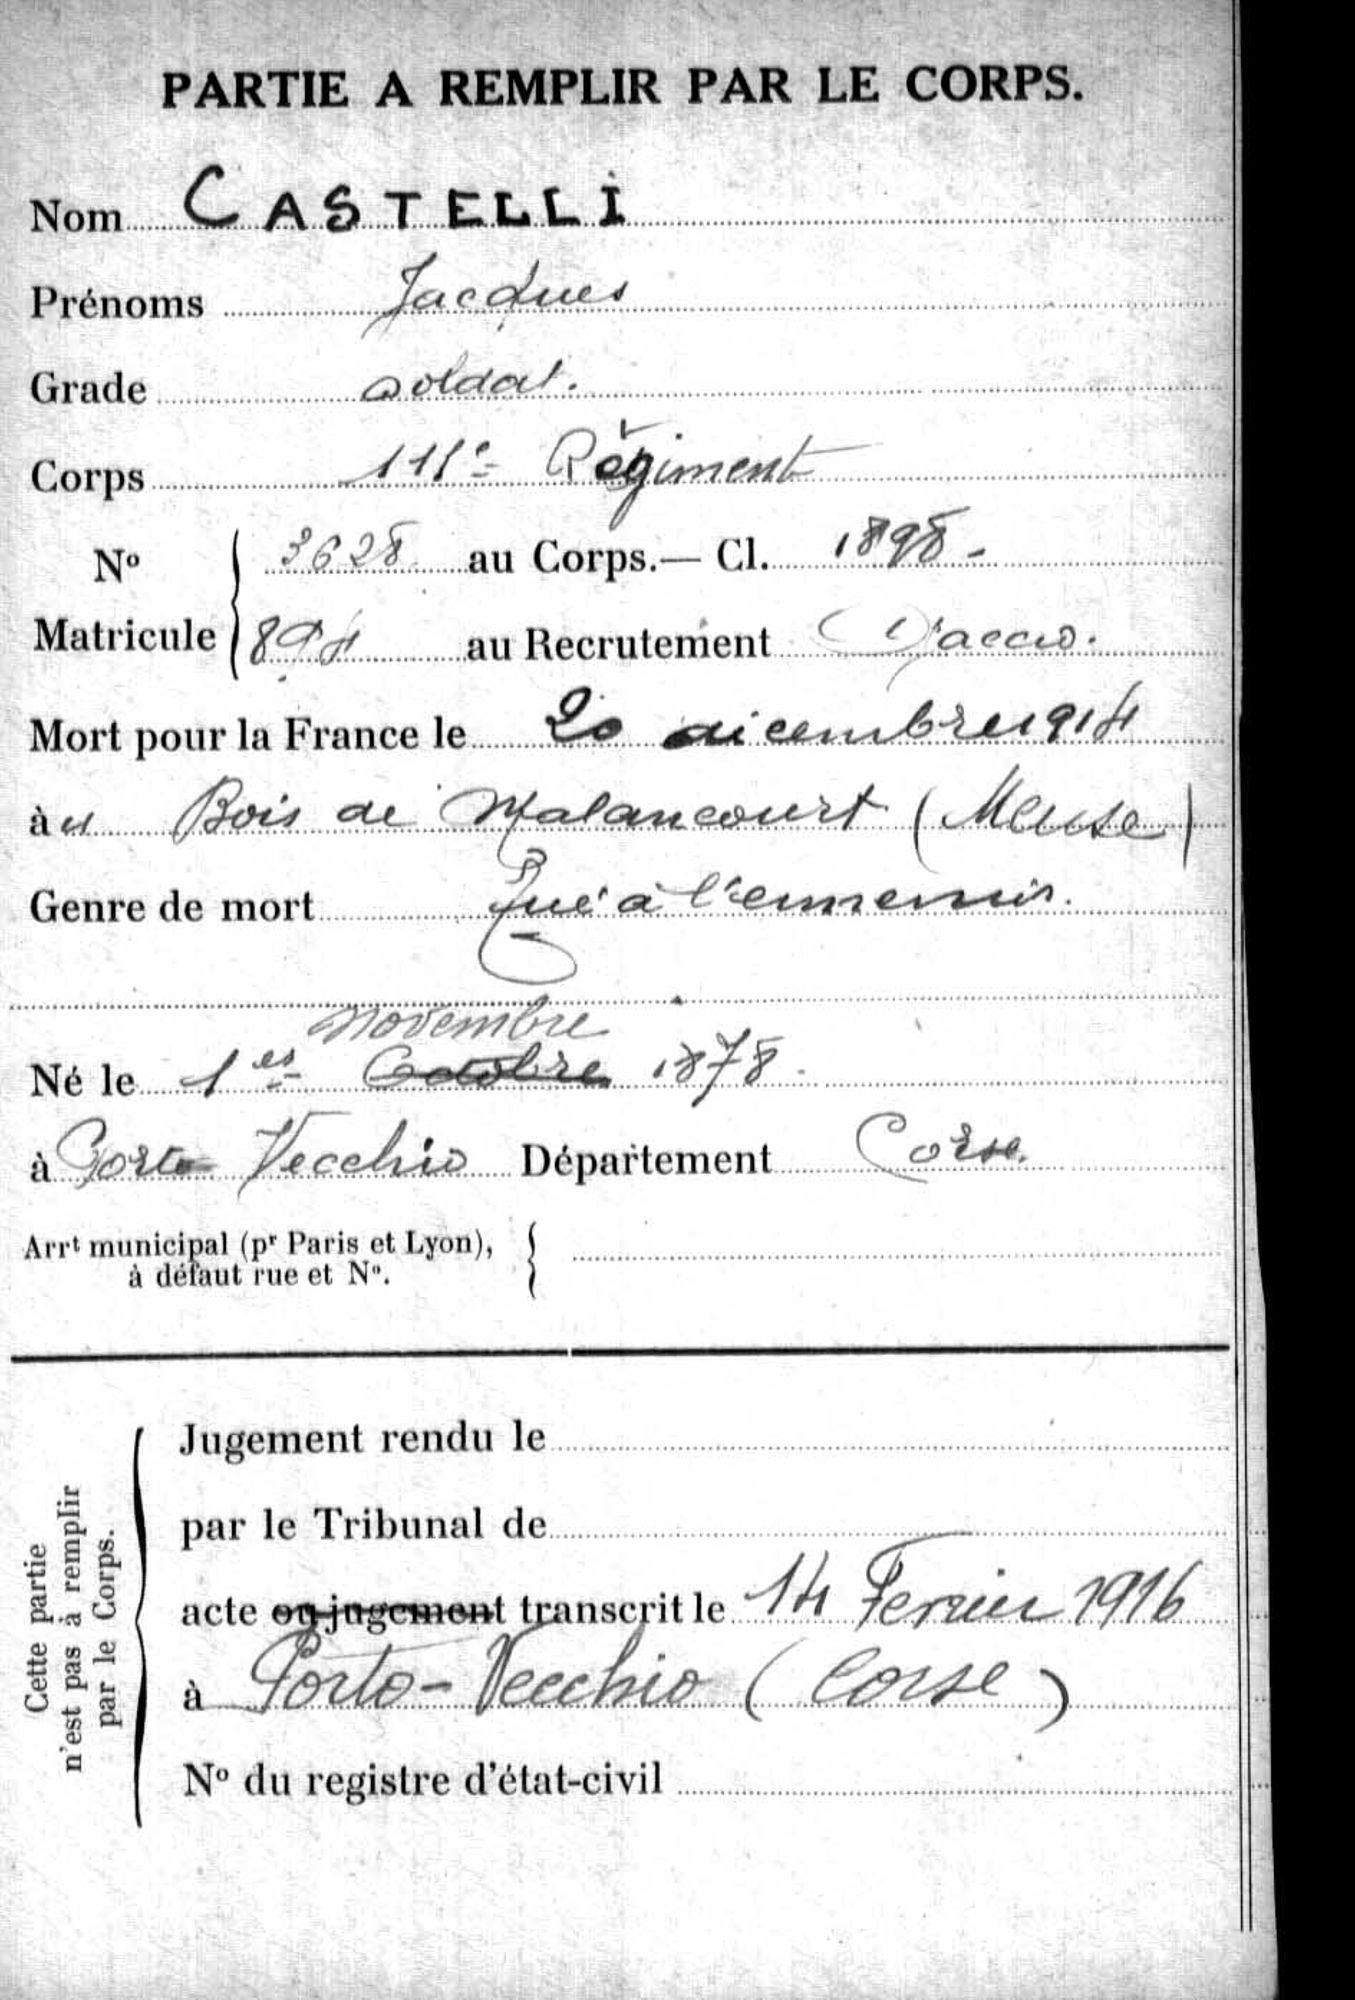 PARTIE A REMPLIR PAR LE CORPS.
Nom CASTELLI
Prénoms Jacques
Grade soldat.
Corps 111e Régiment
No Matricule 3628 au Corps.— Cl. 1898 -
894 au Recrutement Ajaccio.
Mort pour la France le 20 décembre 1914
à u Bois de Malancourt (Meuse)
Genre de mort Tué à l'ennemi.
novembre
Né le 1er Octobre 1878.
à Porto Vecchio Département Corse.
Arrt municipal (pr Paris et Lyon),
à défaut rue et No.
Cette partie
n'est pas à remplir
par le Corps.
Jugement rendu le
par le Tribunal de
acte ou jugement transcrit le 14 Fevrier 1916
à Porto-Vecchio (Corse)
No du registre d'état-civil